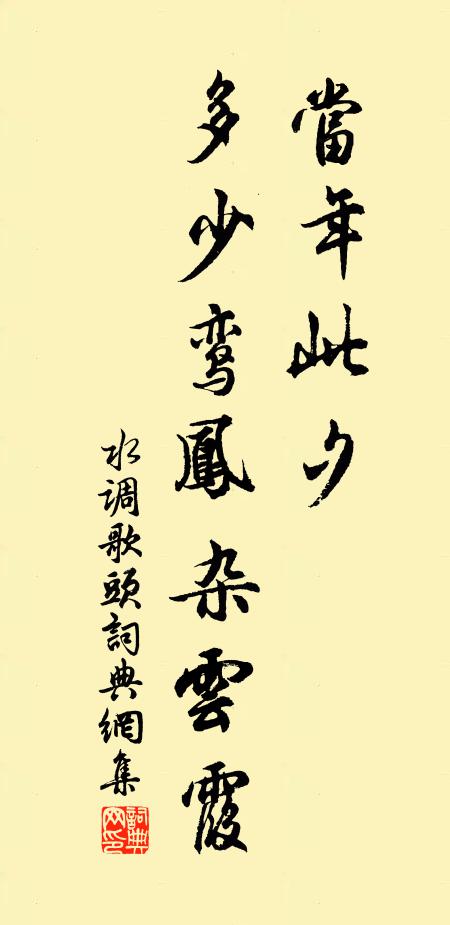 當年此夕
多少鸾鳳杂雲霞
水调歌頭詞典網集
詞典网印